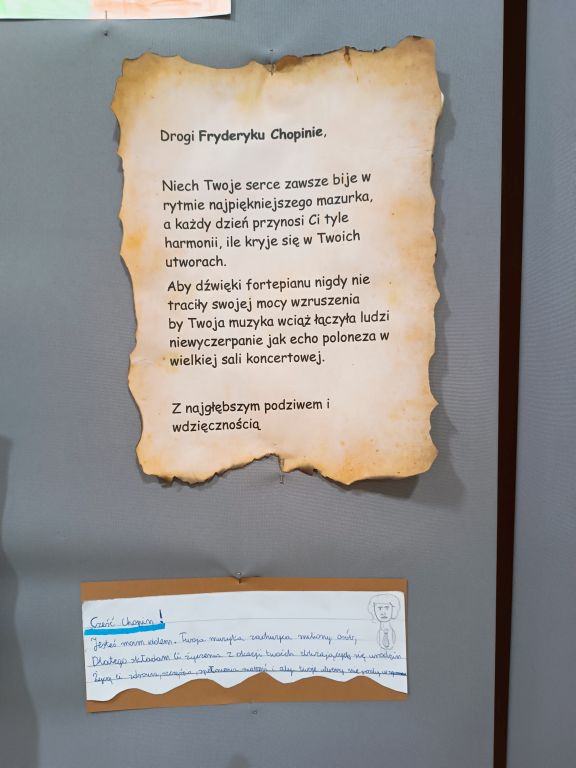 Drogi Fryderyku Chopinie,
Niech Twoje serce zawsze bije w
rytmie najpiękniejszego mazurka,
a każdy dzień przynosi Ci tyle
harmonii, ile kryje się w Twoich
utworach.
Aby dźwięki fortepianu nigdy nie
traciły swojej mocy wzruszenia
by Twoja muzyka wciąż łączyła ludzi
niewyczerpanie jak echo poloneza w
wielkiej sali koncertowej.
Z najgłębszym podziwem i
wdzięcznością
Cześć Chopin!
Jesteś moim idolem. Twoja muzyka zachwyca miliony osób,
Dlatego składam Ci życzenia z okazji twoich zbliżających się urodzin
Życzę Ci zdrowia, szczęścia, spełnienia marzeń i aby twoje utwory nie poszły w